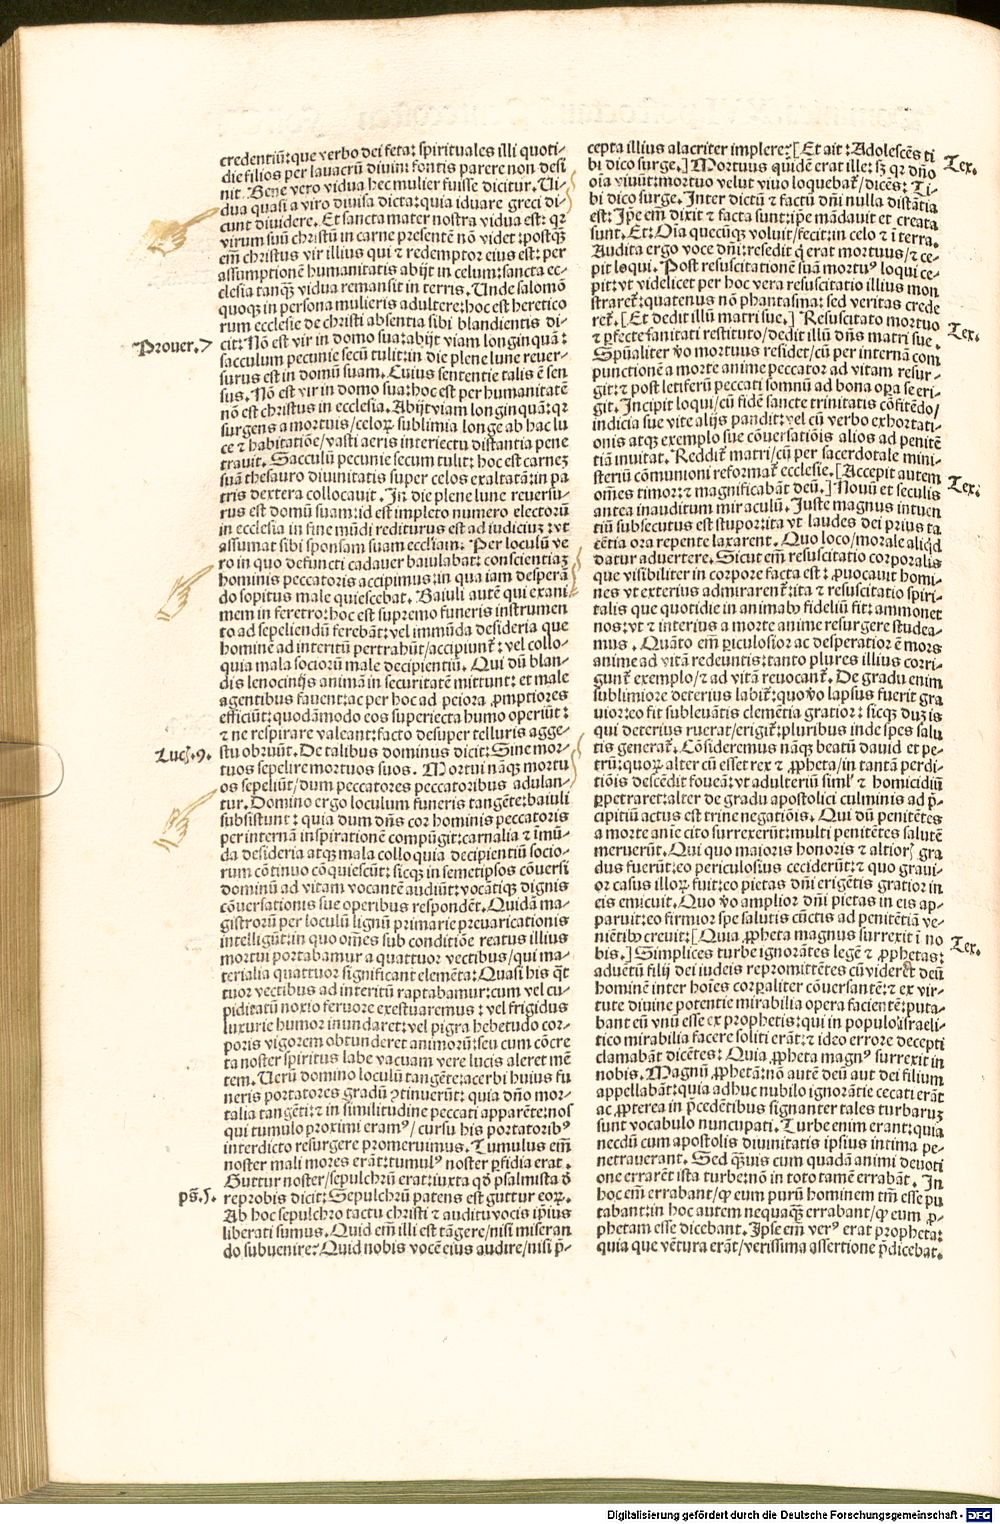 credentiū: que verbo dei feta: spirituales illi quoti-
die filios per lauacrū diuini fontis parere non desi
nit. Bene vero vidua hec mulier fuisse dicitur. Ui-
dua quasi a viro diuisa dicta: quia iduare greci di-
cunt diuidere. Et sancta mater nostra vidua est: qꝛ
virum suū christū in carne presentē nō videt: postqꝫ
em̄ christus vir illius qui ⁊ redemptor eius est: per
assumptionē humanitatis abijt in celum: sancta ec-
clesia tanqꝫ vidua remansit in terris. Unde salomō
quoqꝫ in persona mulieris adultere: hoc est heretico
rum ecclesie de christi absentia sibi blandientis di-
Prouer.7
cit: Nō est vir in domo sua: abijt viam longinquā:
sacculum pecunie secū tulit: in die plene lune reuer-
surus est in domū suam. Cuius sententie talis ē sen
sus. Nō est vir in domo sua: hoc est per humanitatē
nō est christus in ecclesia. Abijt viam longinquā: qꝛ
surgens a mortuis/celoꝝ sublimia longe ab hac lu
ce ⁊ habitatiōe/vasti aeris interiectu distantia pene
trauit. Sacculū pecunie secum tulit: hoc est carneꝫ
suā thesauro diuinitatis super celos exaltatā: in pa
tris dextera collocauit. In die plene lune reuersu-
rus est domū suam: id est impleto numero electorū
in ecclesia in fine mūdi rediturus est ad iudiciuꝫ: vt
assumat sibi sponsam suam eccliam. Per loculū ve
ro in quo defuncti cadauer baiulabat: conscientiaꝫ
hominis peccatoris accipimus: in qua iam desperā
do sopitus male quiescebat. Baiuli autē qui exani
mem in feretro: hoc est supremo funeris instrumen
to ad sepeliendū ferebāt: vel immūda desideria que
hominē ad interitū pertrahūt/accipiunt̄: vel collo-
quia mala sociorū male decipientiū. Qui dū blan-
dis lenocinijs animā in securitatē mittunt: et male
agentibus fauent: ac per hoc ad peiora ꝓmptiores
efficiūt: quodāmodo eos superiecta humo operiūt:
⁊ ne respirare valeant: facto desuper telluris agge-
Luc̄.9.
stu obruūt. De talibus dominus dicit: Sine mor-
tuos sepelire mortuos suos. Mortui nāqꝫ mortu
os sepeliūt/dum peccatores peccatoribus adulan-
tur. Domino ergo loculum funeris tangēte: baiuli
subsistunt: quia dum dn̄s cor hominis peccatoris
per internā inspirationē compūgit: carnalia ⁊ īmū-
da desideria atqꝫ mala colloquia decipientiū socio-
rum cōtinuo cōquiescūt: sicqꝫ in semetipsos cōuersi
dominū ad vitam vocantē audiūt: vocātiqꝫ dignis
cōuersationis sue operibus respondēt. Quidā ma-
gistrorū per loculū lignū primarie preuaricationis
intelligūt: in quo om̄es sub conditiōe reatus illius
mortui portabamur a quattuor vectibus/qui ma-
terialia quattuor significant elemēta: Quasi his q̄t
tuor vectibus ad interitū raptabamur: cum vel cu-
piditatū noxio feruore exestuaremus: vel frigidus
luxurie humor inundaret: vel pigra hebetudo cor-
poris vigorem obtunderet animorū: seu cum cōcre
ta noster spiritus labe vacuam vere lucis aleret mē
tem. Uerū domino loculū tangēte: acerbi huius fu
neris portatores gradū ↄtinuerūt: quia dn̄o mor-
talia tangēti: ⁊ in similitudine peccati apparēte: nos
qui tumulo proximi eramꝰ/cursu his portatoribꝰ
interdicto resurgere promeruimus. Tumulus em̄
noster mali mores erāt: tumulꝰ noster ꝑfidia erat.
Guttur noster/sepulchrū erat: iuxta qd̄ psalmista d̄
ps̄.5.
reprobis dicit: Sepulchrū patens est guttur eoꝝ.
Ab hoc sepulchro tactu christi ⁊ auditu vocis ip̄ius
liberati sumus. Quid em̄ illi est tāgere/nisi miseran
do subuenire: Quid nobis vocē eius audire/nisi p̄-
cepta illius alacriter implere: [Et ait: Adolescēs ti
Tex.
bi dico surge.] Mortuus quidē erat ille: sꝫ qꝛ dn̄o
oīa viuūt: mortuo velut viuo loquebat̄/dicēs: Ti-
bi dico surge. Inter dictū ⁊ factū dn̄i nulla distātia
est: Ip̄e em̄ dixit ⁊ facta sunt: ip̄e mādauit et creata
sunt. Et: Oīa quecūqꝫ voluit/fecit: in celo ⁊ ī terra.
Audita ergo voce dn̄i: resedit q̄ erat mortuus/⁊ ce-
pit loqui. Post resuscitationē suā mortuꝰ loqui ce-
pit: vt videlicet per hoc vera resuscitatio illius mon
straret̄: quatenus nō phantasma: sed veritas crede
ret̄. [Et dedit illū matri sue.] Resuscitato mortuo
Tex.
⁊ ꝑfecte sanitati restituto/dedit illū dn̄s matri sue.
Sp̄ualiter v̄o mortuus residet/cū per internā com
punctionē a morte anime peccator ad vitam resur-
git: ⁊ post letiferū peccati somnū ad bona oꝑa se eri-
git. Incipit loqui/cū fidē sancte trinitatis cōfitēdo/
indicia sue vite alijs pandit: vel cū verbo exhortati-
onis atqꝫ exemplo sue cōuersatiōis alios ad penitē
tiā inuitat. Reddit̄ matri/cū per sacerdotale mini-
steriū cōmunioni reformat̄ ecclesie. [Accepit autem
Tex.
om̄es timor: ⁊ magnificabāt deū.] Nouū et seculis
antea inauditum miraculū. Juste magnus intuen
tiū subsecutus est stupor: ita vt laudes dei prius ta
cētia ora repente laxarent. Quo loco/morale aliqd̄
datur aduertere. Sicut em̄ resuscitatio corporalis
que visibiliter in corpore facta est: ꝓuocauit homi-
nes vt exterius admirarent̄: ita ⁊ resuscitatio spiri-
talis que quotidie in animabꝰ fideliū fit: ammonet
nos: vt ⁊ interius a morte anime resurgere studea-
mus. Quāto em̄ ꝑiculosior ac desperatior ē mors
anime ad vitā redeuntis: tanto plures illius corri-
gunt̄ exemplo/⁊ ad vitā reuocant̄. De gradu enim
sublimiore deterius labit̄: quo v̄o lapsus fuerit gra
uior: eo fit subleuātis clemētia gratior: sicqꝫ duꝫ is
qui deterius ruerat/erigit̄: pluribus inde spes salu
tis generat̄. Cōsideremus nāqꝫ beatū dauid et pe-
trū: quoꝝ alter cū esset rex ⁊ ꝓpheta/in tantā perdi-
tiōis descēdit foueā: vt adulteriū siml̄ ⁊ homicidiū
ꝑpetraret: alter de gradu apostolici culminis ad p̄-
cipitiū actus est trine negatiōis. Qui dū penitētes
a morte anie cito surrexerūt: multi penitētes salutē
meruerūt. Qui quo maioris honoris ⁊ altioꝝ gra
dus fuerūt: eo periculosius ceciderūt: ⁊ quo graui-
or casus illoꝝ fuit: eo pietas dn̄i erigētis gratior in
eis emicuit. Quo v̄o amplior dn̄i pietas in eis ap-
paruit: eo firmior spe salutis cūctis ad penitētiā ve-
niētibꝰ creuit: [Quia ꝓpheta magnus surrexit ī no
Tex.
bis.] Simplices turbe ignorātes legē ⁊ ꝓphetas:
aduētū filij dei iudeis repromittētes cū viderēt deū
hominē inter hoīes corꝑaliter cōuersantē: ⁊ ex vir-
tute diuine potentie mirabilia opera facientē: puta-
bant eū vnū esse ex prophetis: qui in populo israeli-
tico mirabilia facere soliti erāt: ⁊ ideo errore decepti
clamabāt dicētes: Quia ꝓpheta magnꝰ surrexit in
nobis. Magnū ꝓphetā: nō autē deū aut dei filium
appellabāt: quia adhuc nubilo ignorātie cecati erāt
ac ꝓpterea in p̄cedētibus signanter tales turbaruꝫ
sunt vocabulo nuncupati. Turbe enim erant: quia
necdū cum apostolis diuinitatis ipsius intima pe-
netrauerant. Sed qꝫuis cum quadā animi deuoti
one errarēt ista turbe: nō in toto tamē errabāt. In
hoc em̄ errabant/qꝙ eum purū hominem tm̄ esse pu
tabant: in hoc autem nequaqꝫ errabant/qꝙ eum ꝓ-
phetam esse dicebant. Ipse em̄ verꝰ erat propheta:
quia que vētura erāt/verissima assertione p̄dicebat.
Digitalisierung gefördert durch die Deutsche Forschungsgemeinschaft - DFG